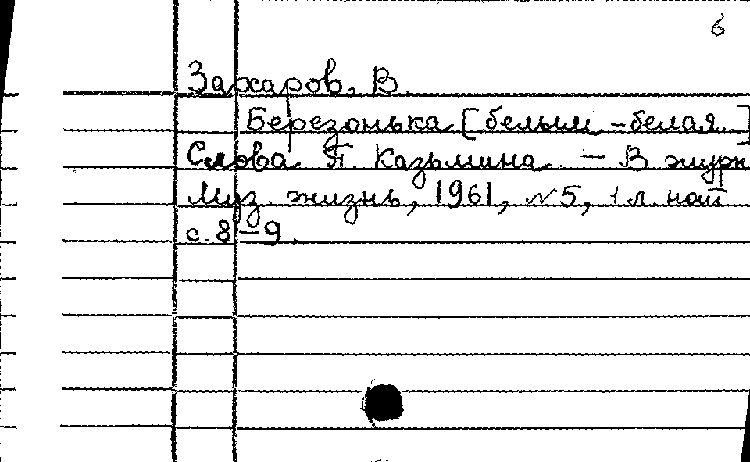 6
Захаров, В.
Березонька [белым-белая..]
Слова П. Казьмина. — В журн
Муз. жизнь, 1961, №5, л. нот
с. 8-9.